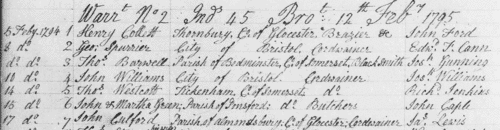 Warrt. No 2 Ind 45 Brot. 12th Feby 1795
5 Feby. 1794 1 Henry Collett Thornbury, C. of Glocester Brazier & John Ford
8 do 2 Geo. Spurrier City of Bristol Cordwainer Edwd. T. Cann
do do 3 Thos. Barwell Parish of Bedminster, C. of Somerset, Black Smith Jos. Gunning
10 do 4 John Williams City of Bristol Cordwainer Jos. Williams
14 do 5 Thos. Westcott Tickenham, C. of Somerset do Richd. Jenkins
15 do 6 John & Martha Green, Parish of Butchers John Caple
17 do 7 John Parish of Almondsbury, C. of Glocester, Cordwainer Jas. Lewis